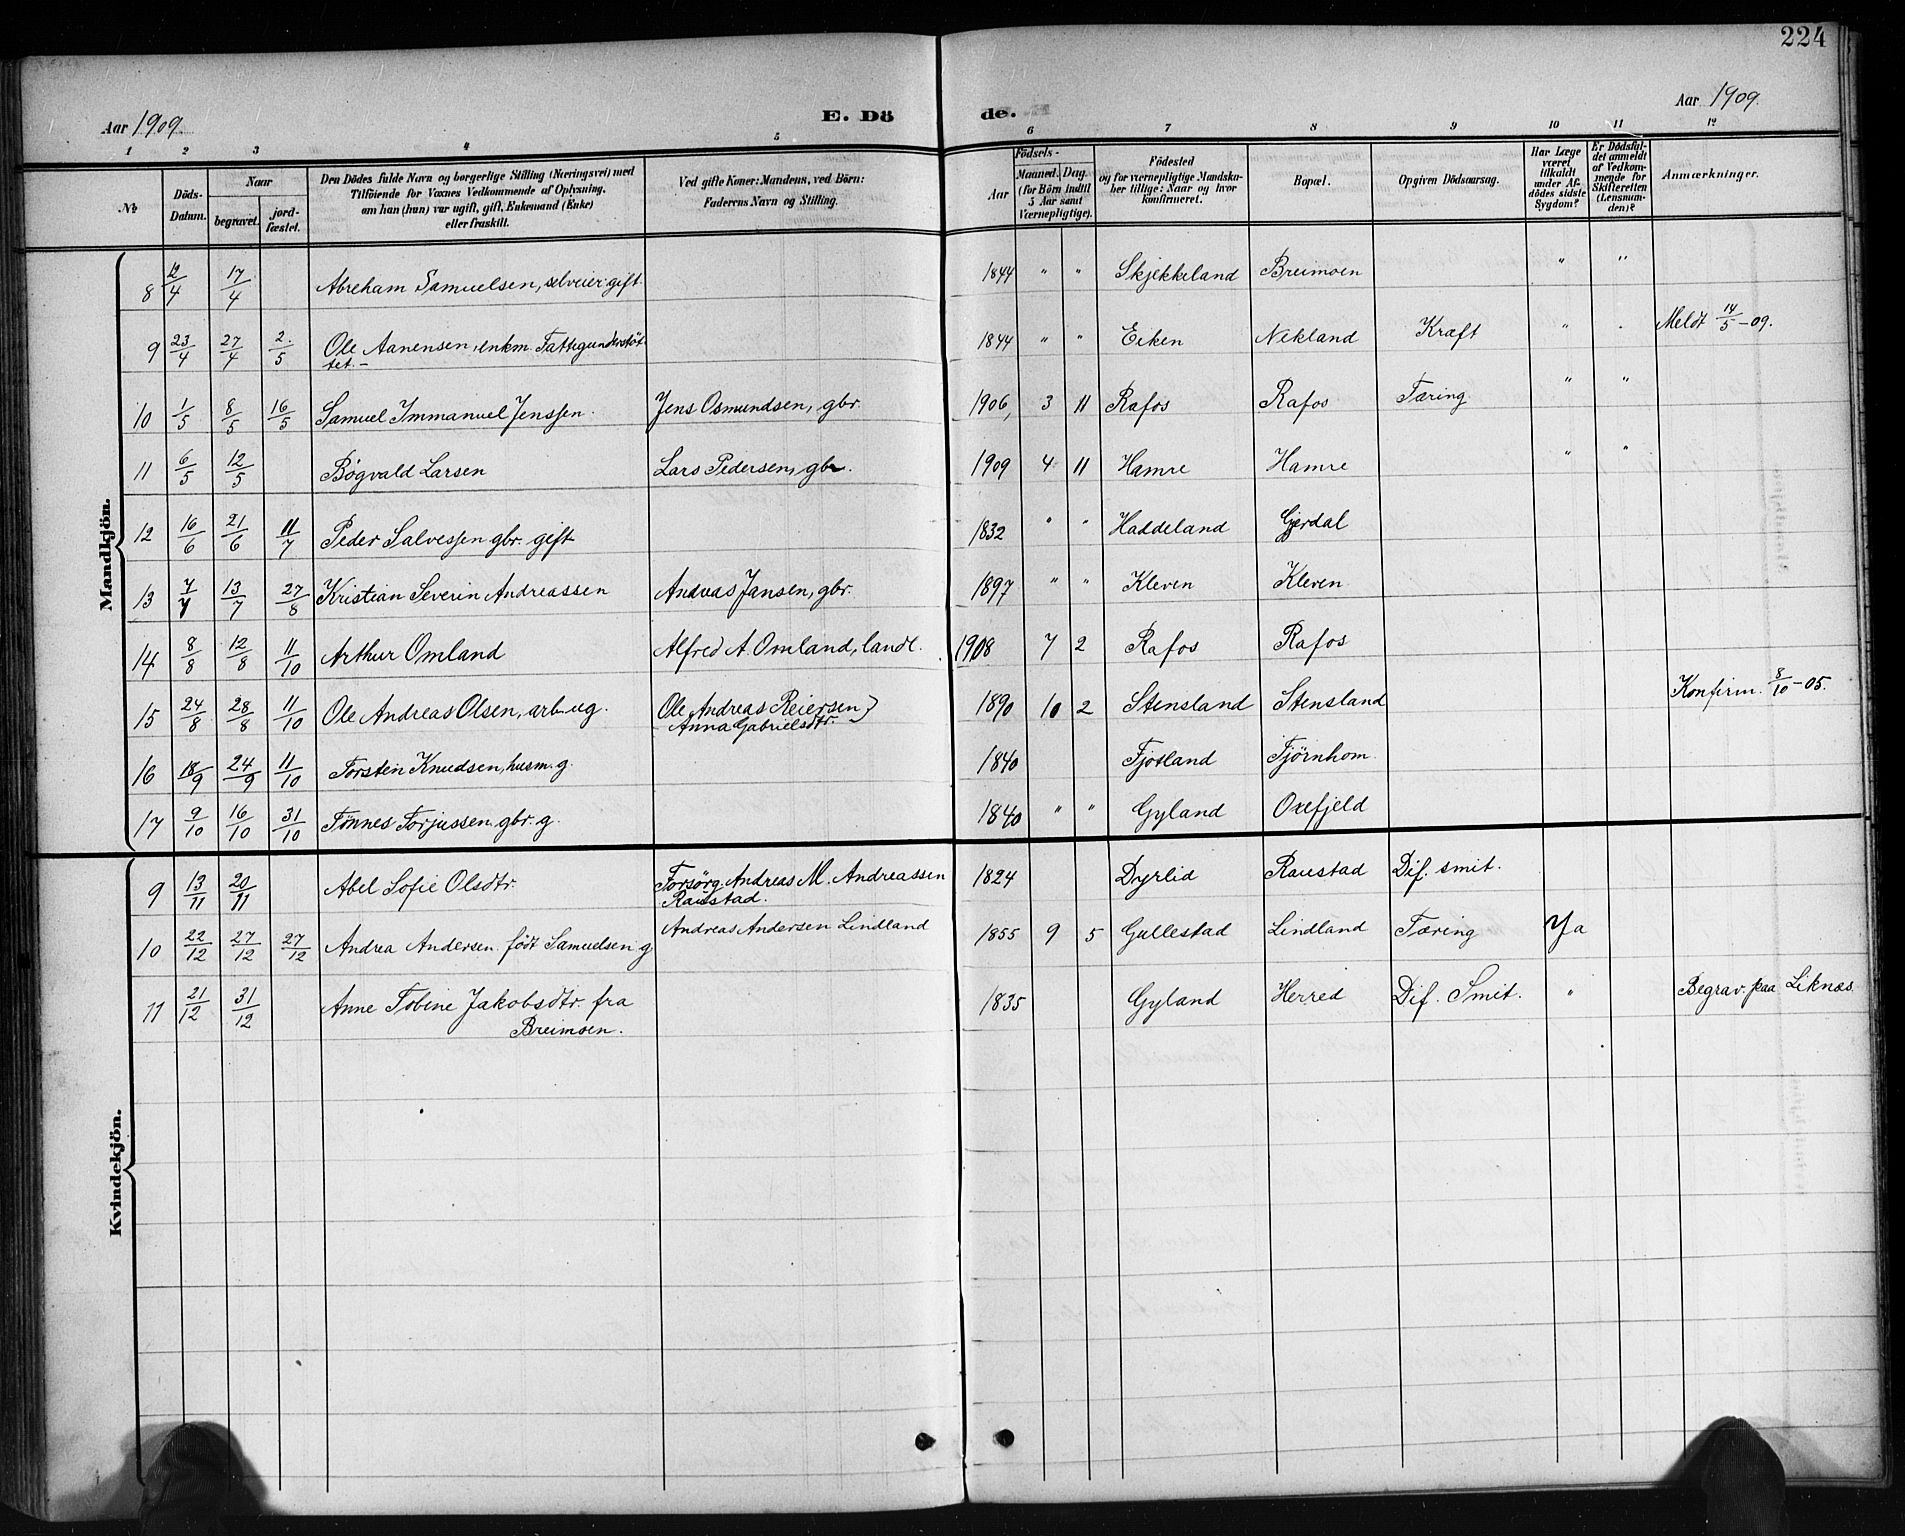 224
Aar 1909.
E. Dö
de.
Aar 1909.
1 2 3 4 5 6 7 8 9 10 11 12
№
Döds-Datum.
Naar
begravet.
jord-fæstet.
Den Dödes fulde Navn og borgerlige Stilling (Næringsvei) med
Tilföiende for Voxnes Vedkommende af Oplysning,
om han (hun) var ugift, gift, Enkemand (Enke)
eller fraskilt.
Ved gifte Koner: Mandens, ved Börn:
Faderens Navn og Stilling.
Födsels-
Aar
Maaned. Dag.
(for Börn indtil
5 Aar samt
Værnepligtige).
Födested
og for værnepligtige Mandska-
ber tillige: Naar og hvor
konfirmeret.
Bopæl.
Opgiven Dödsaarsag.
Har Læge
været
tilkaldt
under Af-
dödes sidste
Sygdom?
Er Dödsfal-
det anmeldt
af Vedkom-
mende for
Skifteretten
(Lensman-
den)?
Anmærkninger.
Mandkjön.
8 12/4 17/4 Abreham Samuelsen, selveier gift 1844 " " Skjekkeland Breimoen " "
9 23/4 27/4 2/5 Ole Aanensen, enkm. Fattigunderstøt-
tet.- 1844 " " Eiken Nekland Kræft " " Meldt 14/5-09.
10 1/5 8/5 16/5 Samuel Immanuel Jenssen. Jens Osmundsen, gbr. 1906, 3 11 Rafos Rafos Tæring " "
11 6/5 12/5 Bøgvald Larsen Lars Pedersen, gbr. 1909 4 11 Hamre Hamre " "
12 16/6 21/6 11/7 Peder Salvessen gbr. gift 1832 " " Haddeland Gjerdal
13 7/7 13/7 27/8 Kristian Severin Andreassen Andreas Jansen, gbr. 1897 " " Kleven Kleven
14 8/8 12/8 11/10 Arthur Omland Alfred A. Omland, landl. 1908 7 2 Rafos Rafos
15 24/8 28/8 11/10 Ole Andreas Olsen, arb. ug. Ole Andreas Reiersen }
Anna Gabrielsdtr. 1890 10 2 Stensland Stensland Konfirm. 8/10-05.
16 18/9 24/9 11/10 Torsten Knudsen, husm. g. 1840 Fjotland Tjørnhom
17 9/10 16/10 31/10 Tønnes Torjussen gbr. g. 1840 " " Gyland Oxefjeld
Kvindekjön.
9 13/11 20/11 Abel Sofie Olsdtr. Forsørg. Andreas M. Andreassen
Raustad. 1824 Dyrlid Raustad Dif. smit.
10 22/12 27/12 27/12 Andrea Andersen født Samuelsen g Andreas Andersen Lindland 1855 9 5 Gullestad Lindland Tæring Ja
11 21/12 31/12 Anne Tobine Jakobsdtr. fra
Breimoen. 1835 Gyland Herred Dif. Smit. " Begrav. paa Liknes